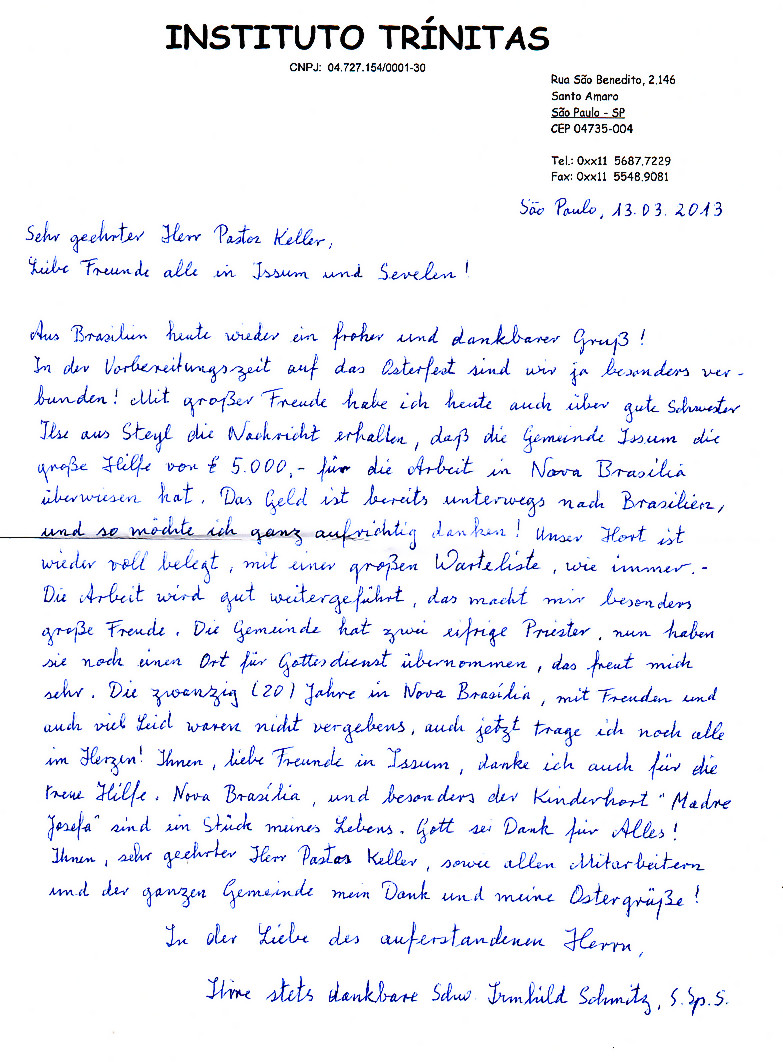 INSTITUTO TRÍNITAS
CNPJ: 04.727.154/0001-30
Rua São Benedito, 2.146
Santo Amaro
São Paulo - SP
CEP 04735-004
Tel.: 0xx11 5687.7229
Fax: 0xx11 5548.9081
São Paulo, 13.03.2013
Sehr geehrter Herr Pastor Keller,
Liebe Freunde alle in Issum und Sevelen!
Aus Brasilien heute wieder ein froher und dankbarer Gruß!
In der Vorbereitungszeit auf das Osterfest sind wir ja besonders ver-
bunden! Mit großer Freude habe ich heute auch über gute Schwester
Ilse aus Steyl die Nachricht erhalten, daß die Gemeinde Issum die
große Hilfe von € 5.000,- für die Arbeit in Nova Brasília
überwiesen hat. Das Geld ist bereits unterwegs nach Brasilien,
und so möchte ich ganz aufrichtig danken! Unser Hort ist
wieder voll belegt, mit einer großen Warteliste, wie immer.-
Die Arbeit wird gut weitergeführt, das macht mir besonders
große Freude. Die Gemeinde hat zwei eifrige Priester, nun haben
sie noch einen Ort für Gottesdienst übernommen, das freut mich
sehr. Die zwanzig (20) Jahre in Nova Brasília, mit Freuden und
auch viel Leid waren nicht vergebens, auch jetzt trage ich noch alle
im Herzen! Ihnen, liebe Freunde in Issum, danke ich auch für die
treue Hilfe. Nova Brasília, und besonders der Kinderhort "Madre
Josefa" sind ein Stück meines Lebens. Gott sei Dank für Alles!
Ihnen, sehr geehrter Herr Pastor Keller, sowie allen Mitarbeitern
und der ganzen Gemeinde mein Dank und meine Ostergrüße!
In der Liebe des auferstandenen Herrn,
Ihre stets dankbare Schw. Irmhild Schmitz, S.Sp.S.